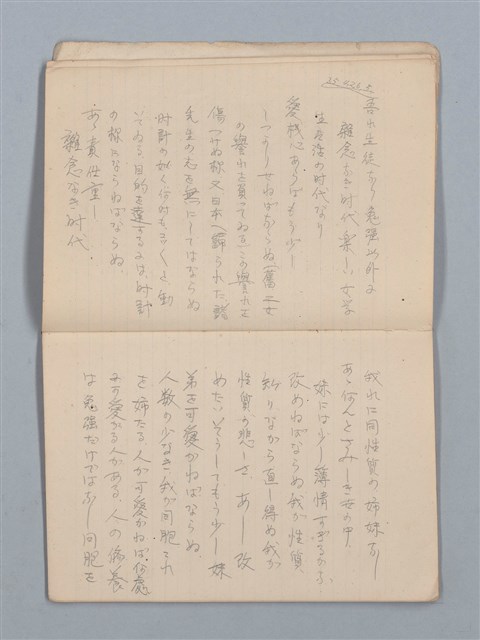 吾れ生徒なり勉強以外に
雑念なき時代楽しい女学
生生活の時代なり
愛校心あらばもう少し
しっかりせねばならぬ(舊二女
の誉れを負ってゐる)この誉れを
傷つけぬ様又日本へ帰られた諸
先生の志を無にしてはならぬ
時計の如く何時もコツコツと動
いてゐる目的を達するには時計
の様にならねばならぬ、
あゝ責任重し
雑念なき時代.
我れに同性質の姉妹なし
あゝ何んとさみしき女の中
妹には少し薄情すぎるかな、
改めねばならぬ我が性質
知りながら直し得ぬ我が
性質の悲しさ、あゝ改
めたいどうしてもう少し妹
弟を可愛がねばならぬ、
人数の少なき我が同胞これ
を姉たる人が可愛がねば何處
に可愛がる人がある、人の修養
は勉強だけではなし同胞を